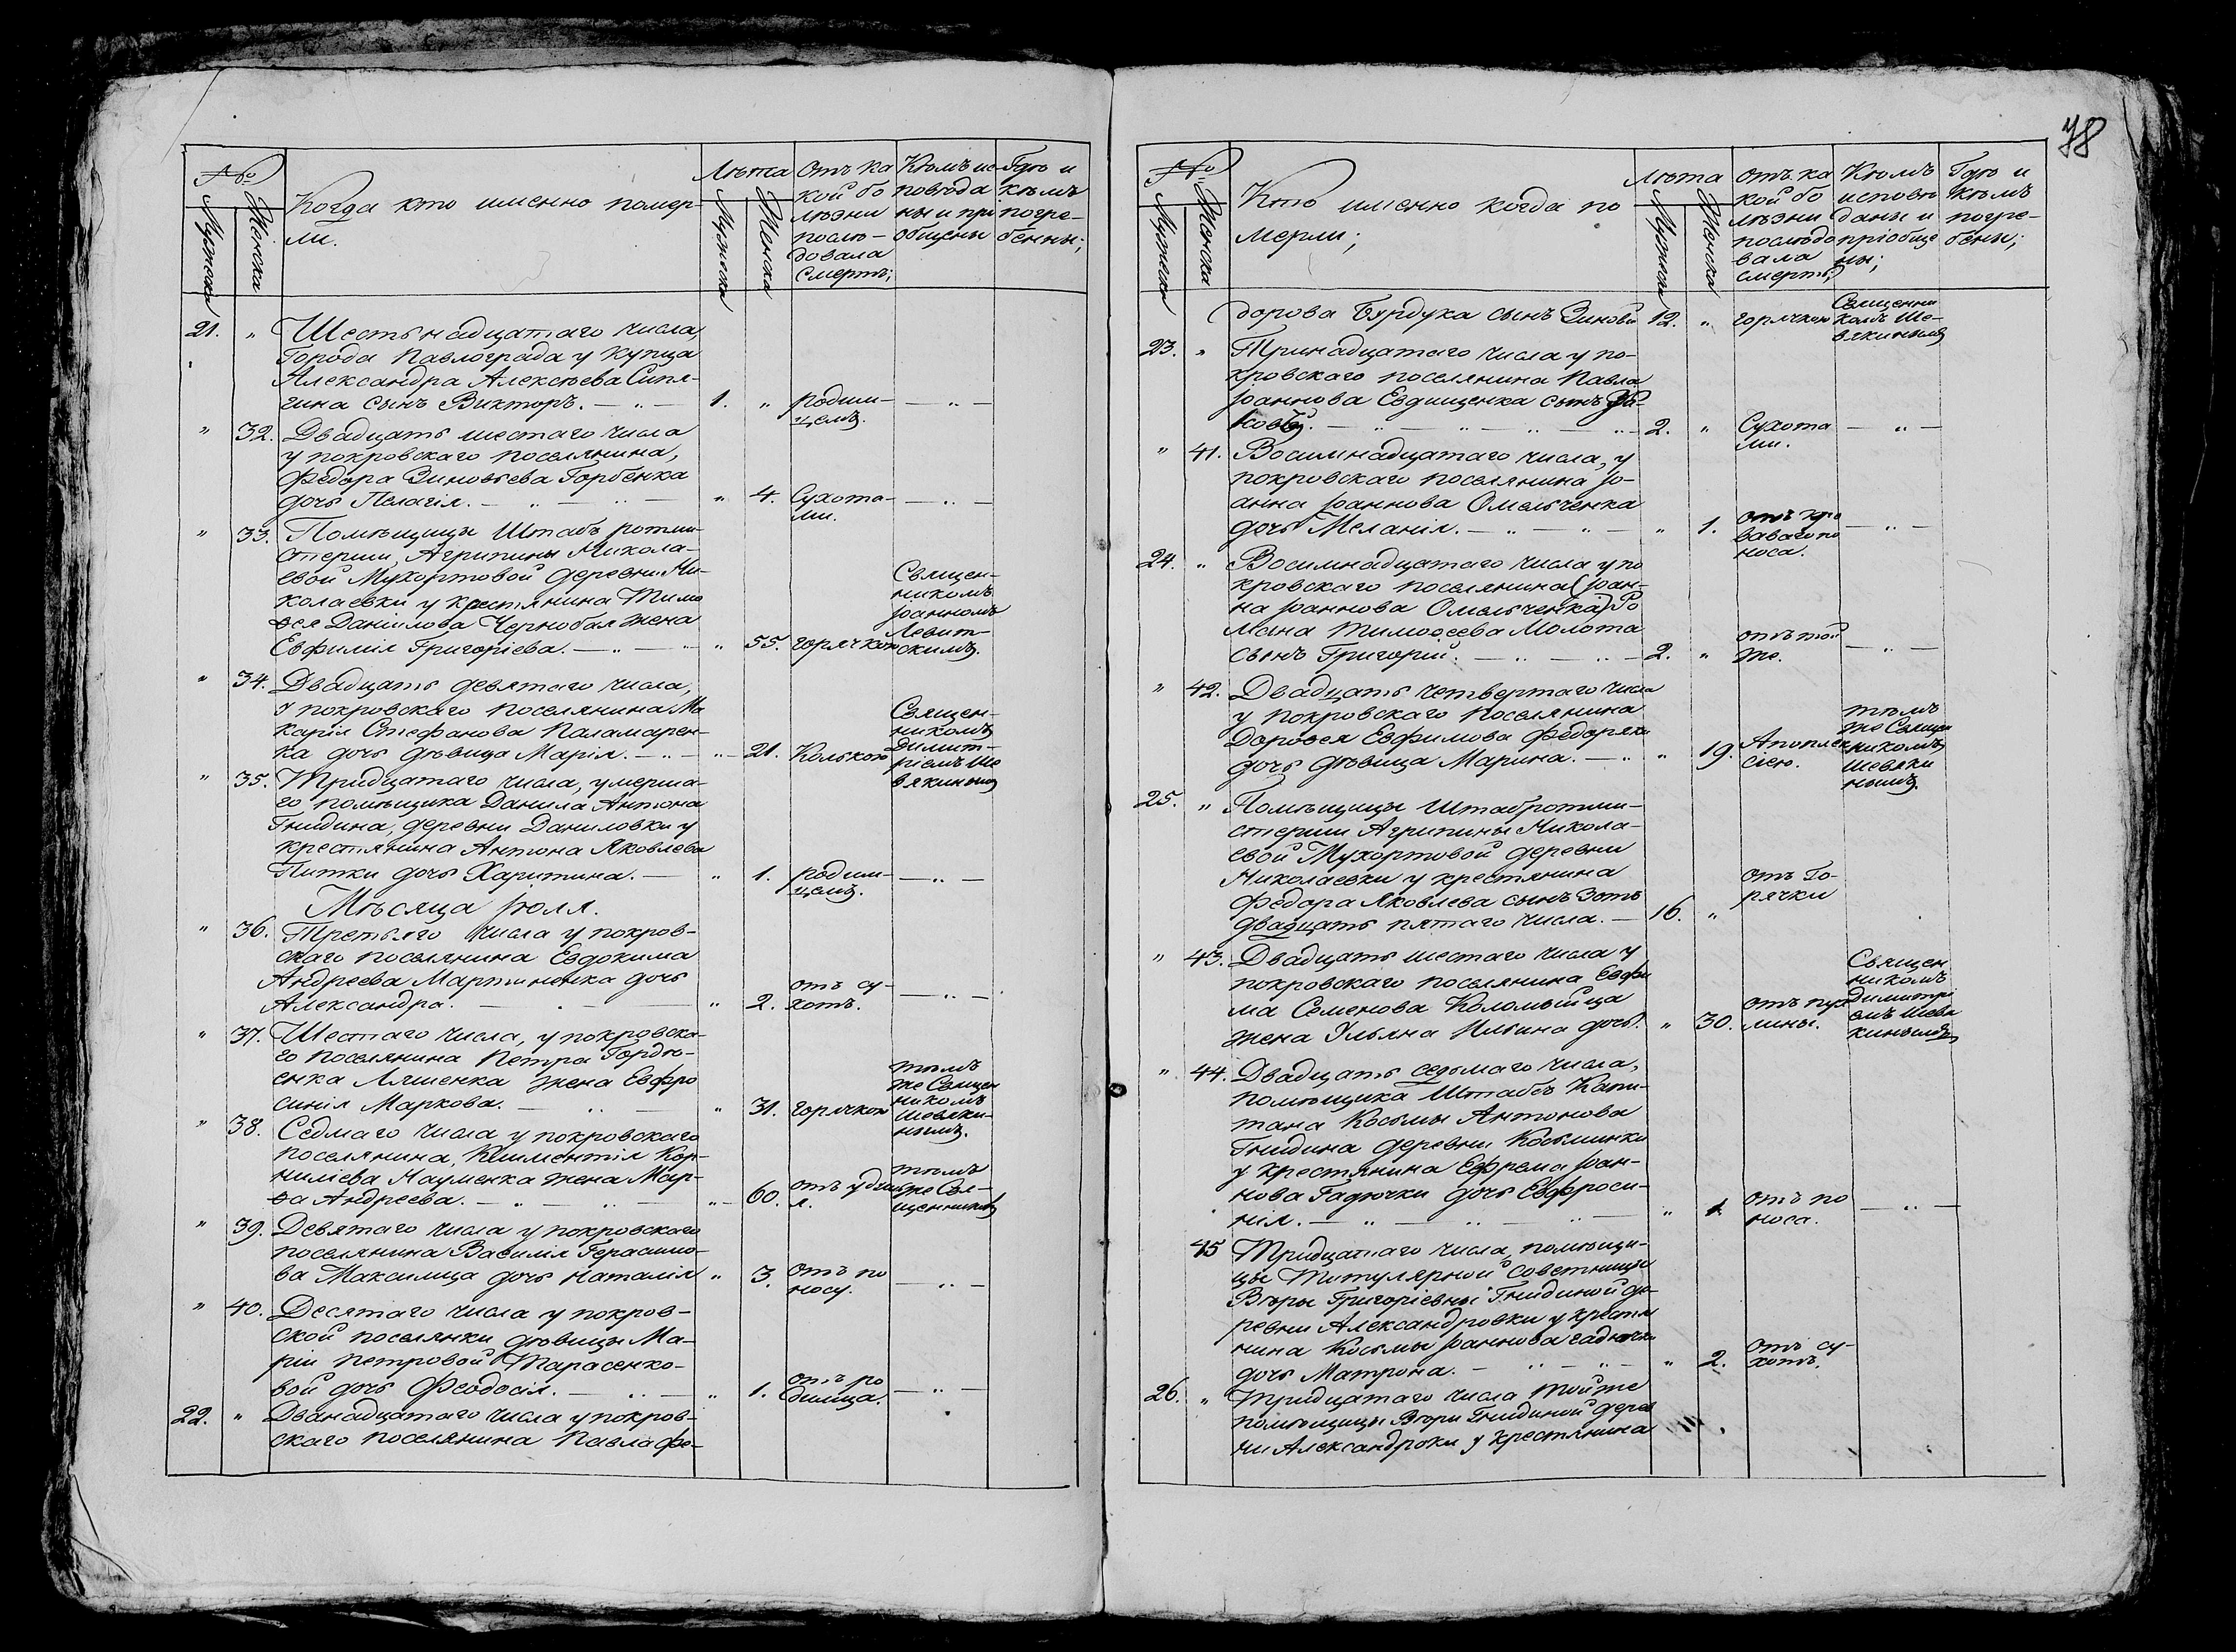 78
№
Мужеска
Женска
Когда кто именно помер-
ли.
Лѣта
Мужеска
Женска
Отъ ка
кой бо
лѣзни
послѣ-
довала
смерть;
Кѣмъ ис-
повѣда
ны и прі
общены
Гдѣ и
кѣмъ
погре-
бенны;
21. " Шестьнадцатаго числа,
Города Павлограда у Купца
Александра Алексѣева Сипя-
гина сынъ Викторъ. — " — 1. " родим- — " —
цемъ.
" 32. Двадцать шестаго числа
у покровскаго поселянина,
Федора Зиновьева Горбенка
дочь Пелагія. — " — " — " 4. Сухота- — " —
ми.
" 33. Помѣщицы Штабъ ротми-
стерши, Агрипины Никола-
евой Мухортовой деревни Ни-
колаевки у крестянина Тимо
ѳея Даніилова Чернобая жена
Евфимія Григоріева. — " — " " 55. горячкою
Священ-
никомъ
Іоанномъ
Левит-
скимъ.
" 34. Двадцать девятаго числа,
у покровскаго поселянина Ма
карія Стефанова Паламарен-
ка дочь дѣвица Марія. — " — " 21. Колькою
Священ-
никомъ
Димит-
ріемъ Ше
вякинымъ
" 35. Тридцатаго числа, умерша-
го помѣщика Данила Антона
Гнидина, деревни Даниловки у
крестянина Антона Яковлева
Питки дочь Харитина. — " 1. родим- — " —
цемъ.
Мѣсяца Іюля.
" 36. Третьяго числа у покров-
скаго поселянина Евдокима
Андреева Мартиненка дочь
Александра. — " — " 2. отъ су-
хотъ. — " —
" 37. Шестаго числа, у покровска-
го поселянина Петра Гордѣ-
енка Ляшенка жена Евфро
синія Маркова. — " — " 31. горячкою
тѣмъ
же Священ
никомъ
Шевяки-
нымъ.
" 38. Седмаго числа у покровскаго
поселянина, Климентія Кор-
нилієва Науменка жена Мар-
ѳа Андреева. — " — " — " 60. отъ удушь
я.
тѣмъ
же Свя-
щенникомъ
" 39. Девятаго числа у покровскаго
поселянина Василія Герасимо-
ва Максимца дочь Наталія " 3. отъ по
носу. — " —
" 40. Десятаго числа у покров-
ской поселянки дѣвицы Ма-
ріи Петровой Тарасенко-
вой дочь Феодосія. — " — " 1. отъ ро
димца. — " —
22. " Дванадцатаго числа у покров-
скаго поселянина Павла Фе-
№
Мужеска
Женска
Кто именно когда по
мерли;
Лѣта
Мужеска
Женска
отъ ка
кой бо
лѣзни
послѣдо
вала
смерть;
Кѣмъ
исповѣ
даны и
пріобще
ны;
Гдѣ и
кѣмъ
погре-
бены;
дорова Бурдука сынъ Зиновій 12. " горячкою
Священни
комъ Ше-
вякинымъ
23. " Тринадцатаго числа у по-
кровскаго поселянина Павла
Іоаннова Евдищенка сынъ Яа-
ковъ. — " — " — " — " — 2. " Сухота — " —
ми.
" 41. Восимнадцатаго числа, у
покровскаго поселянина Іо-
анна Іоаннова Омельченка
дочь Меланія. — " — " — " 1. отъ кро
ваваго по
носа. — " —
24. " Восимнадцатаго числа у по
кровскаго поселянина (Іоан-
на Іоаннова Омельченка) Ро
мана Тимоѳеева Молота
сынъ Григорій. — " — " — 2. " отъ той
же. — " —
" 42. Двадцать четвертаго числа
у покровскаго поселянина
Дороѳея Евфимова Федоряка
дочь дѣвица Марина. — " " 19. Апоплек
сіею.
тѣмъ
же Священ
никомъ
Шевяки
нымъ.
25. " Помѣщицы Штабротми-
стерши Агрипины Никола-
евой Мухортовой деревни
Николаевки у крестянина
Федора Яковлева сынъ Зотъ
двадцать пятаго числа. — 16. " отъ Го-
рячки
" 43. Двадцать шестаго числа у
покровскаго поселянина Евфи
ма Семенова Коломыйца
жена Ульяна Ильина дочь. " 30. отъ пух
лины.
Священ
никомъ
Димитрі
емъ Шевя
кинымъ
" 44. Двадцать седьмаго числа,
помѣщика Штабсъ Капи-
тана Косьмы Антонова
Гнидина деревни Косьминки
у крестянина Ефрема Іоан-
нова Гадючки дочь Евфроси-
нія. — " — " — " — " 1. отъ по
носа. — " —
45 Тридцатаго числа, помѣщи-
цы Титулярной советницы
Вѣры Григоріевны Гнидиной де-
ревни Александровки у крестя
нина Косьмы Іоаннова Гадючки
дочь Матрона. — " — " — " 2. отъ су-
хотъ.
26. " Тридцатаго числа тойже
помѣщицы Вѣры Гнидиной дерев
ни Александроки у крестянина